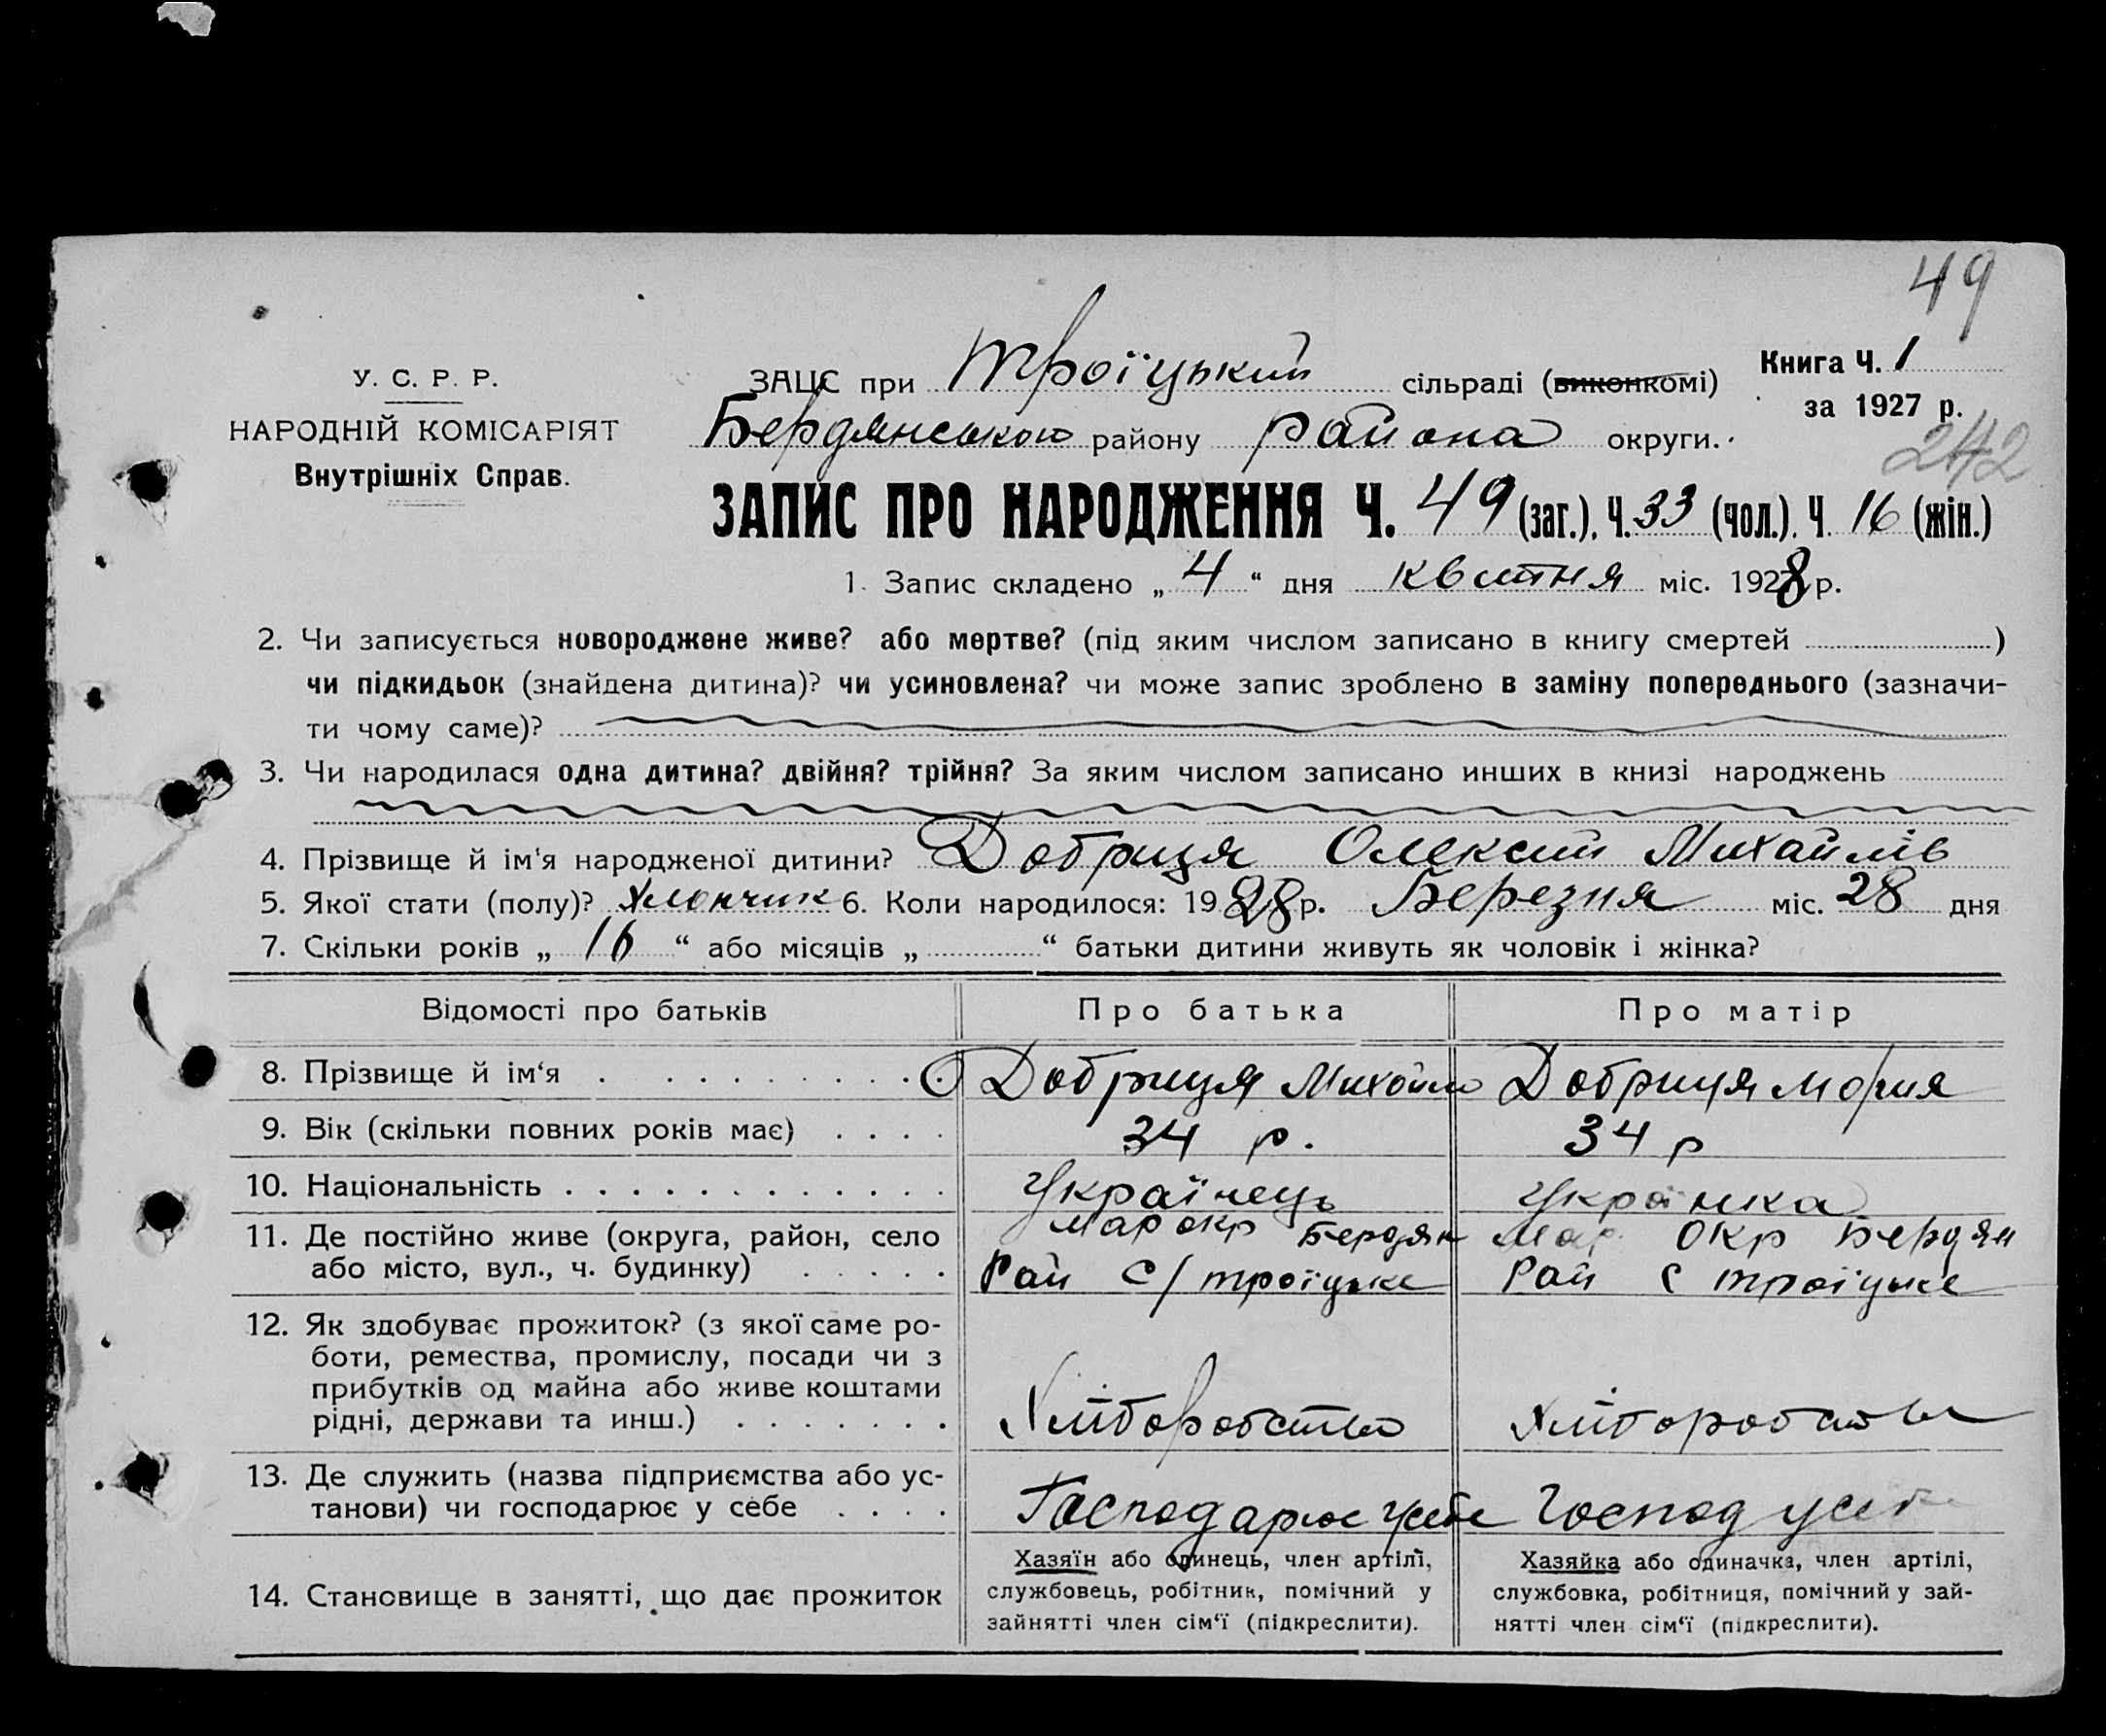 49
У. С. Р. Р.
НАРОДНІЙ КОМІСАРІЯТ
Внутрішніх Справ.
ЗАЦС при Троїцький сільраді (виконкомі)
Книга Ч. 1
за 1927 р.
Бердянського району района округи.
242
ЗАПИС ПРО НАРОДЖЕННЯ Ч. 49 (заг.). Ч. 33 (чол.). Ч. 16 (жін.)
1. Запис складено „ 4 “ дня квитня міс. 1928 р.
2. Чи записується новороджене живе? або мертве? (під яким числом записано в книгу смертей )
чи підкидьок (знайдена дитина)? чи усиновлена? чи може запис зроблено в заміну попереднього (зазначи-
ти чому саме)?
3. Чи народилася одна дитина? двійня? трійня? За яким числом записано инших в книзі народжень
4. Прізвище й ім'я народженої дитини? Добриця Олексий Михайлів
5. Якої стати (полу)? Хлопчик 6. Коли народилося: 1928 р. Березня міс. 28 дня
7. Скільки років „ 16 “ або місяців „ “ батьки дитини живуть як чоловік і жінка?
Відомості про батьків Про батька Про матір
8. Прізвище й ім‘я Добриця Михайло Добриця Мария
9. Вік (скільки повних років має) 34 р. 34 р
10. Національність Українець Українка
11. Де постійно живе (округа, район, село Мар окр Бердян Мар. Окр Бердян
або місто, вул., ч. будинку) Рай С/Троїцьке Рай С Троїцьке
12. Як здобуває прожиток? (з якої саме ро-
боти, ремества, промислу, посади чи з
прибутків од майна або живе коштами
рідні, держави та инш.) Хліборобство Хліборобство
13. Де служить (назва підприємства або ус-
танови) чи господарює у себе Господарює у себе Господ у себе
14. Становище в занятті, що дає прожиток
Хазяїн або одинець, член артілі,
службовець, робітник, помічний у
зайнятті член сім‘ї (підкреслити).
Хазяйка або одиначка, член артілі,
службовка, робітниця, помічний у зай-
нятті член сім‘ї (підкреслити).